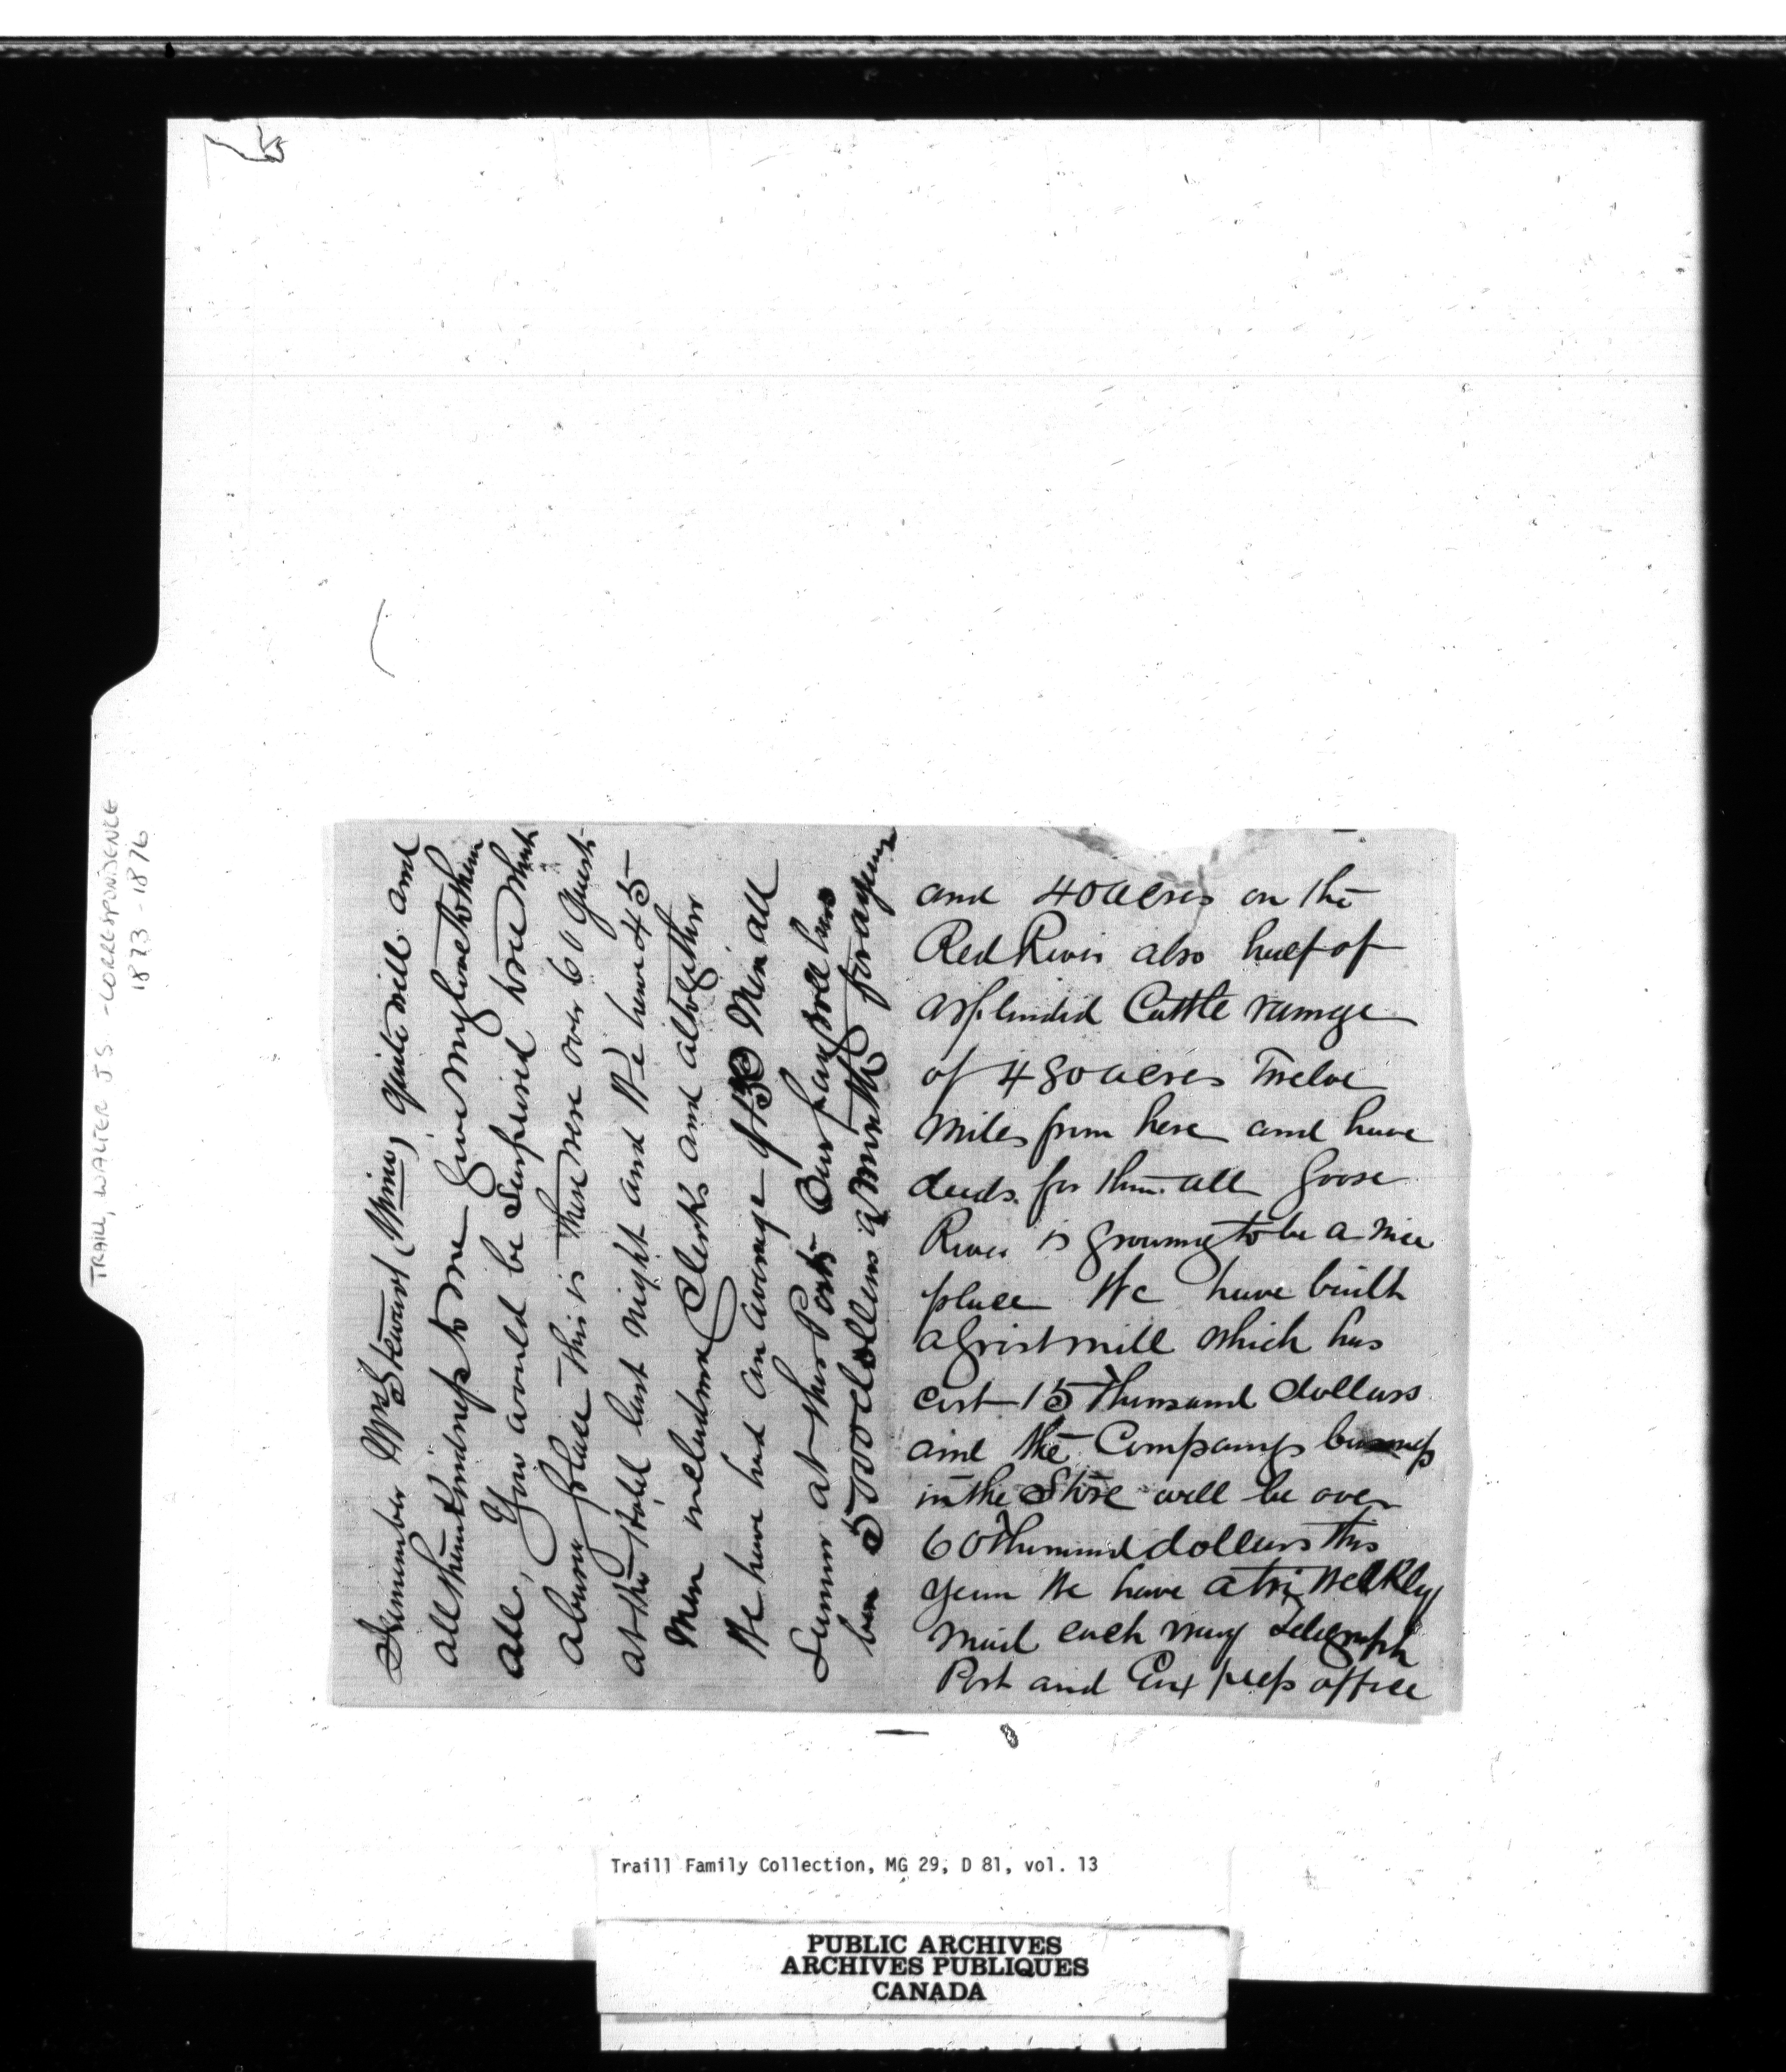 TRAILL, WALTER J S - CORRESPONDENCE
1873-1876
Remember Mrs Stewart (Mima) quite well and
all their kindness to me Give my love to them
all, You would be Surpised to see what
a busy place this is There were over 60 Guest
at the Hotel last night and We have 45
Men including Clerks and altogether
We have had an average of 150 Men all
Summer at this Post Our pay roll has
been 5000 dollars a Month for a year
and 40 acres on the
Red River also half of
a splendid Cattle range
of 480 acres Twelve
miles from here and have
deeds for them all Goose
River is growing to be a nice
place We have built
a Gristmill which has
cost 15 Thousand dollars
and the Companys business
in the Store will be over
60 Thousand dollars this
year We have a tri Weekly
mail each way Telegraph
Post and Express office
Traill Family Collection, MG 29, D 81, vol. 13
PUBLIC ARCHIVES
ARCHIVES PUBLIQUES
CANADA